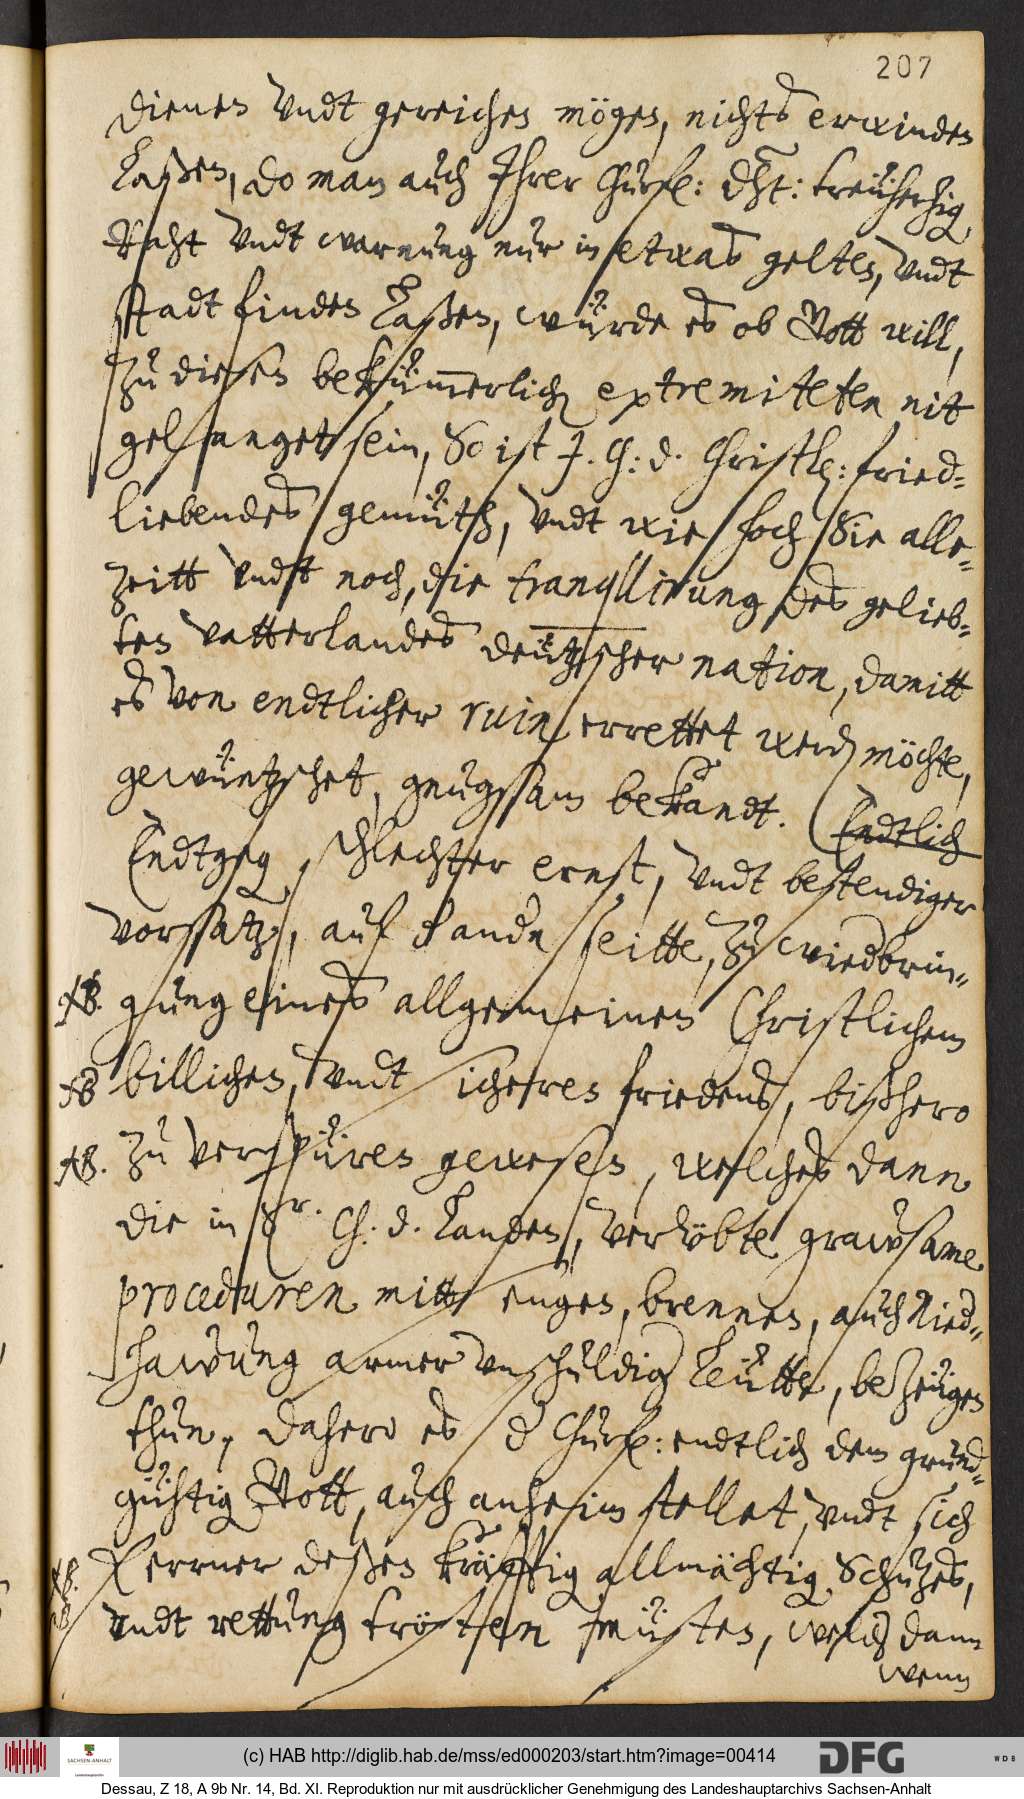 207
dienen vndt gereichen mögen, nichts erwinden
laßen, do man auch Ihrer Churfl: dht: treühertzig
Raht vndt warnung nur in etwas gelten, vndt
stadt finden laßen, würde es ob Gott will,
zu diesen bekümmerlich extremiteten nit
gelanget sein, So ist I. Ch: d. Christl: fried-
liebendes gemüth, vndt wie hoch Sie alle-
zeitt vndt noch, die tranqllirung des gelieb-
ten vatterlandes deützscher nation, damitt
es von endtlicher ruin errettet werd möchte,
gewüntzschet, gnugssam bekandt. Endtlich
Endtgeg, schlechter ernst, vndt bestendiger
vorssatz, auf  seitte, zu wiedbrin-
NB. gung eines allgemeinen Christlichem
NB billichen, vndt sicheren friedens, bißhero
NB. zu verspüren gewesen, welches dann
die in Sr. Ch: d. Landen, verübte grawsame
proceduren mitt sengen, brennen, auch Nied-
hawung armer vnschuldig Leütte, bezeugen
thun, dahero es d Churfl: endtlich dem grund-
gühtig Gott, auch anheim stellet, vndt sich
NB. NB. ferrner deßen kräfftig allmächtig Schutzes,
vndt rettung trösten müsten, welch dann
wenn
(c) HAB http://diglib.hab.de/mss/ed000203/start.htm?image=00414
SACHSEN-ANHALT
Landeshauptarchiv
DFG
WDB
Dessau, Z 18, A 9b Nr. 14, Bd. XI. Reproduktion nur mit ausdrücklicher Genehmigung des Landeshauptarchivs Sachsen-Anhalt